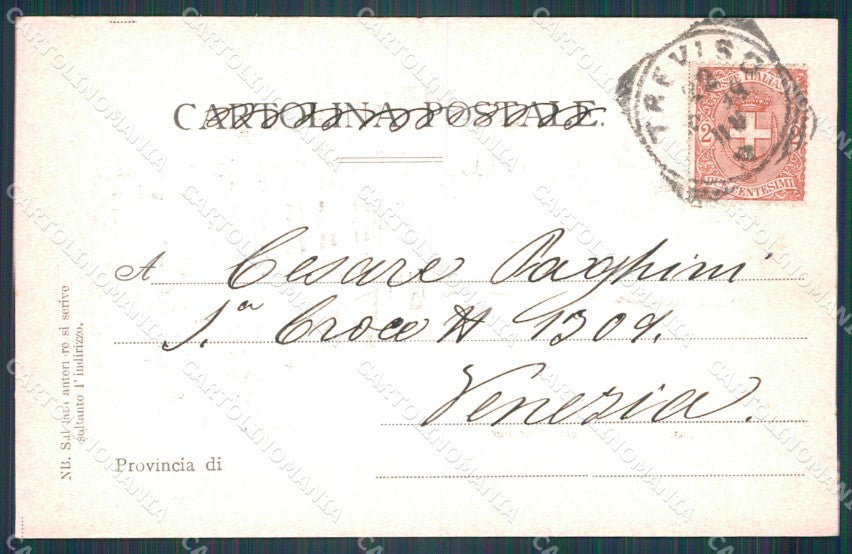 CARTOLINA POSTALE.
TREVISO
POSTE ITALIANE
2 2
CENTESIMI
A Cesare Paghini
S.a Croce N 1309.
Venezia.
Provincia di
NB. Sul lato anteriore si scrive
soltanto l'indirizzo.
CARTOLINOMANIA